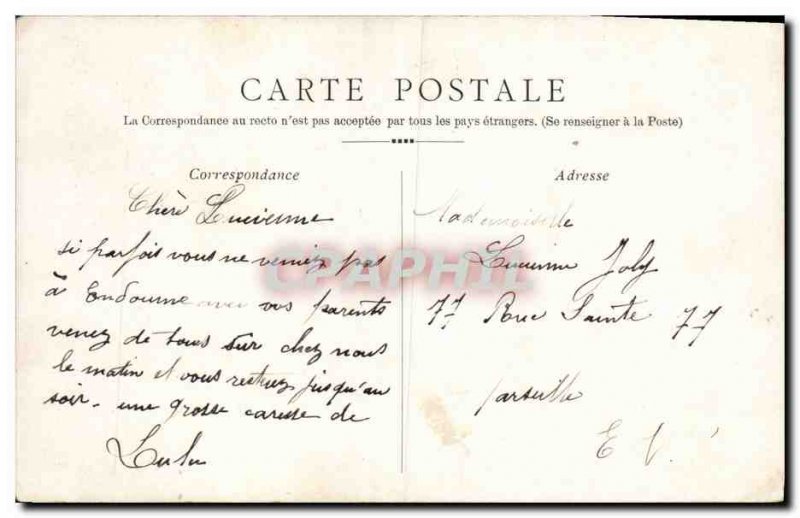 CARTE POSTALE
La Correspondance au recto n'est pas acceptée par tous les pays étrangers. (Se renseigner à la Poste)
Correspondance
Chère Lucienne
si parfois vous ne veniez pas
à Endoume avec vos parents
venez de tous sur chez nous
le matin et vous restez jusqu'au
soir - une grosse caresse de
Lulu
Adresse
Mademoiselle
Lucienne Joly
77 Rue Sainte 77
Marseille
E V.
CPAPHIL